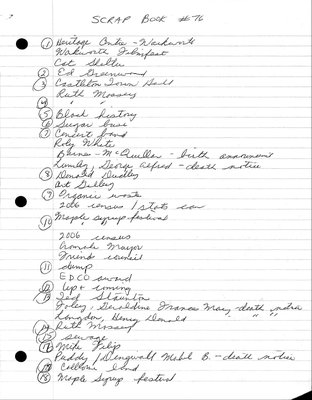 SCRAP BOOK #76
① Heritage Centre - Warkworth
Warkworth Filmfest
Cat Shelter
② Ed Greenwood
③ Castleton Town Hall
Ruth Mossey
④ " "
⑤ Black history
⑥ Sugar bush
⑦ Concert band
Roly White
Barnes - McQuillan - birth announcement
Lumley, George Alfred - death notice
⑧ Donald Dudley
Art Gallery
⑨ Organic waste
2006 census / stats can
⑩ Maple syrup festival
2006 census
Cramahe Mayor
Friends council
⑪ dump
EDCO award
⑫ Up + coming
⑬ Ted Staunton
Foley, Geraldine Frances Mary - death notice
Longdon, Henry Donald " "
⑭ Ruth Mossey
⑮ sewage
⑯ Mike Filip
Puddy / Dingwall Mabel B. - death notice
Colborne land
⑱ Maple Syrup festival